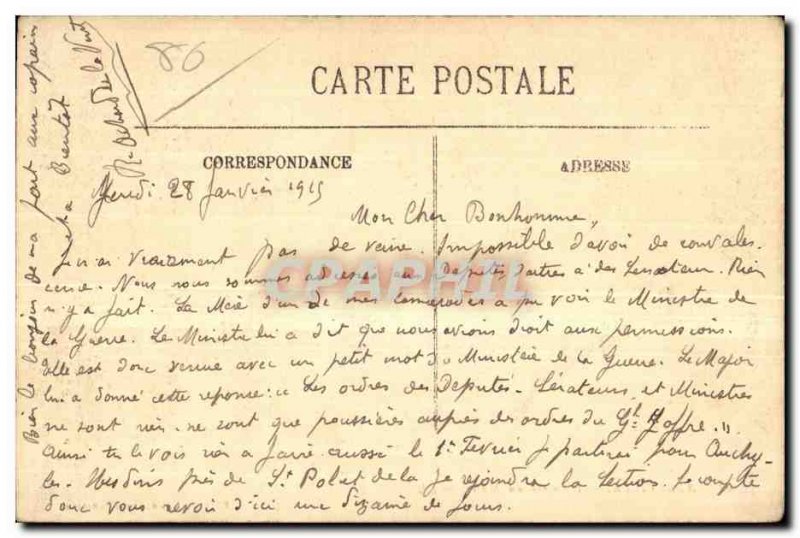 86
CARTE POSTALE
CORRESPONDANCE
ADRESSE
Jeudi 28 Janvier 1915
Mon Cher Bonhomme,
Je n'ai vraiment pas de veine. Impossible d'avoir de convales-
cence. Nous nous sommes adressés aux Députés d'autres à des Senateur. Rien
n'y a fait. La Mère d'un de mes camarades a pu voir le Ministre de
la Guerre. Le Ministre lui a dit que nous avions droit aux permissions.
Elle est donc venue avec un petit mot du Ministère de la Guerre. Le Major
lui a donné cette réponse : " Les ordres des Députés - Sénateurs et Ministres
ne sont rien. ne sont que poussières auprès des ordres du Gl. Joffre "
Ainsi tu le vois rien a faire aussi le 1er Fevrier je partirai pour Auchy-
les-Hesdins près de St Pol et de la je rejoindrai la Section. Je compte
donc vous revoir d'ici une dizaine de jours.
Bien le bonjour de ma part aux copains
et a Bientôt
CPAPHIL